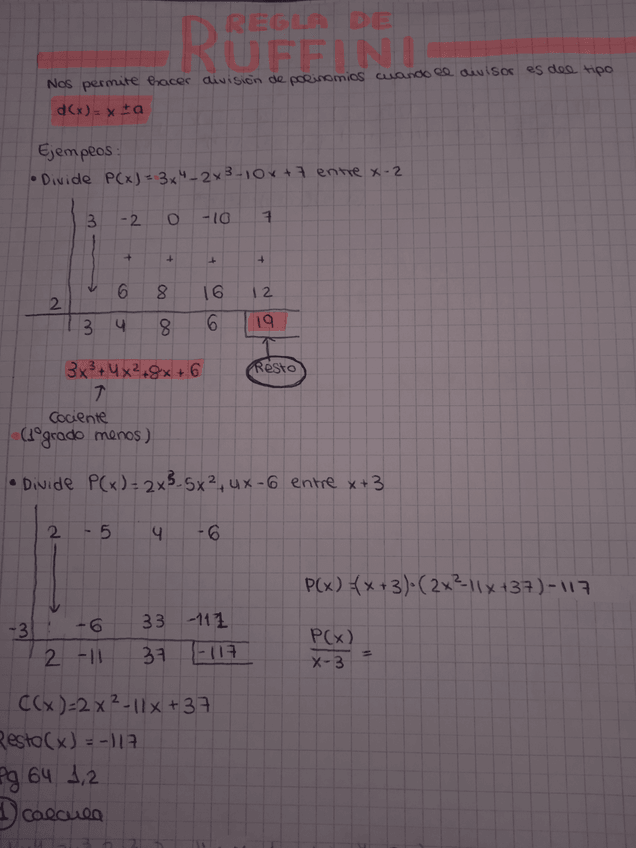 REGLA DE
RUFFINI
Nos permite hacer división de polinomios cuando el divisor es del tipo
d(x) = x ± a
Ejemplos:
• Divide P(x) = 3x⁴ - 2x³ - 10x + 7 entre x - 2
3 -2 0 -10 7
+ + + +
2 6 8 16 12
3 4 8 6 19
3x³ + 4x² + 8x + 6 Resto
Cociente
(1º grado menos)
• Divide P(x) = 2x³ - 5x² + 4x - 6 entre x + 3
2 - 5 4 - 6
P(x) = (x + 3) · (2x² - 11x + 37) - 117
-3 -6 33 -111
2 -11 37 -117
P(x)
x - 3 =
C(x) = 2x² - 11x + 37
Resto(x) = -117
Pg 64 1,2
1 calcula